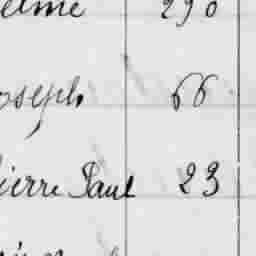 elme 290
oseph 66
ierre Paul 23